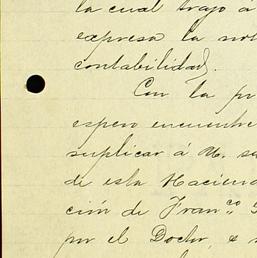 la cual trajo á
expresa la not
contabilidad.
Con la pr
espero encuentre
suplicar á U. se
de esta Haciend
ción de Fran.co S
por el Doctor, e